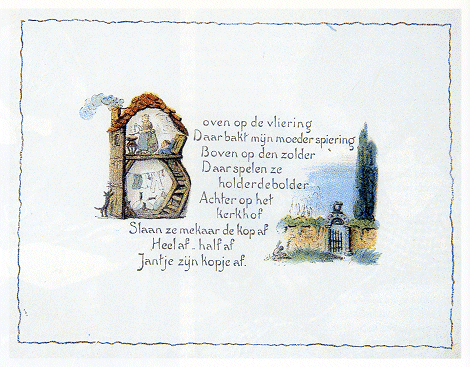 Boven op de vliering
Daar bakt mijn moeder spiering
Boven op den zolder
Daar spelen ze
holderdebolder
Achter op het
kerkhof
Slaan ze mekaar de kop af
Heel af - half af
Jantje zijn kopje af.